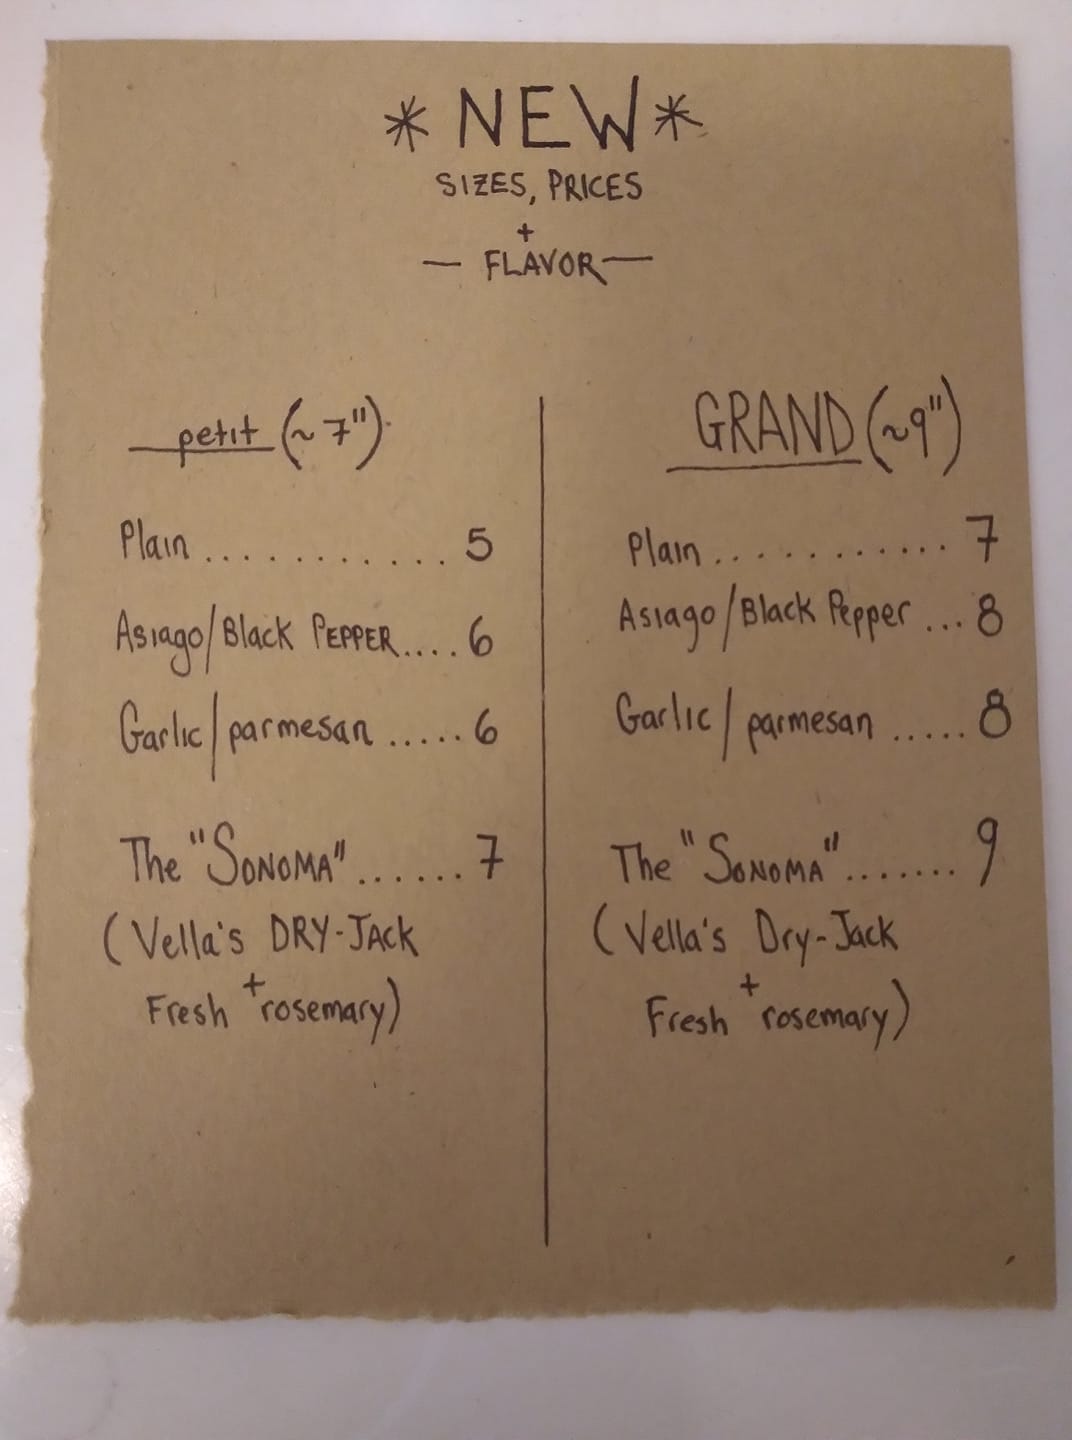 *NEW*
SIZES, PRICES
+
— FLAVOR —
petit (~7")
Plain ............ 5
Asiago/Black PEPPER.... 6
Garlic/parmesan ..... 6
The "SONOMA" ...... 7
(Vella's DRY-JACK
+
Fresh rosemary)
GRAND (~9")
Plain ........... 7
Asiago/Black Pepper ... 8
Garlic/parmesan ..... 8
The "SONOMA" ....... 9
(Vella's Dry-Jack
+
Fresh rosemary)